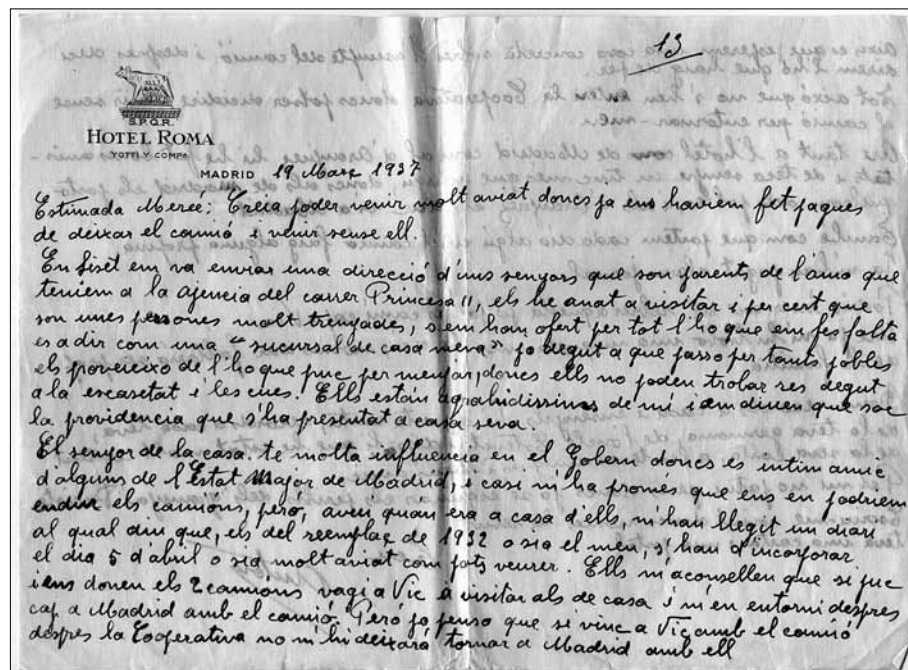 13
S.P.Q.R.
HOTEL ROMA
YOTTI, Y COMPA
MADRID 19 Març 1937
Estimada Merce: Creia poder venir molt aviat doncs ja ens haviem fet pagues
de deixar el camió i venir sense ell.
En Siset em va enviar una direcció d'uns senyors que son parents de l'amo que
teniem a la Ajencia del carrer Princesa", els he anat a visitar i per cert que
son unes persones molt trempades, s'em han ofert per tot l'ho que em fes falta
es a dir com una "sucursal de casa meva" jo degut a que passo per tants pobles
els proveeixo de l'ho que puc per menjar, doncs ells no poden trobar res degut
a la escasetat i les cues. Ells están agrahidissims de mi i em diuen que soc
la providencia que s'ha presentat a casa seva.
El senyor de la casa te molta influencia en el Gobern doncs es intim amic
d'alguns de l'Estat Major de Madrid, i casi m'ha promes que ens en podriem
endur els camions, però, avui quan era a casa d'ells, m'han llegit un diari
al qual diu que, els del reemplaç de 1932 o sia el meu, s'han d'incorporar
el dia 5 d'abril o sia molt aviat com pots veurer. Ells m'aconsellen que si puc
i ens donen els 2 camions vagi a Vic a visitar als de casa i m'en entorni despres
cap a Madrid amb el camió. Peró jo penso que si vinc a Vic amb el camió
despres la Cooperativa no m'hi deixará tornar a Madrid amb ell